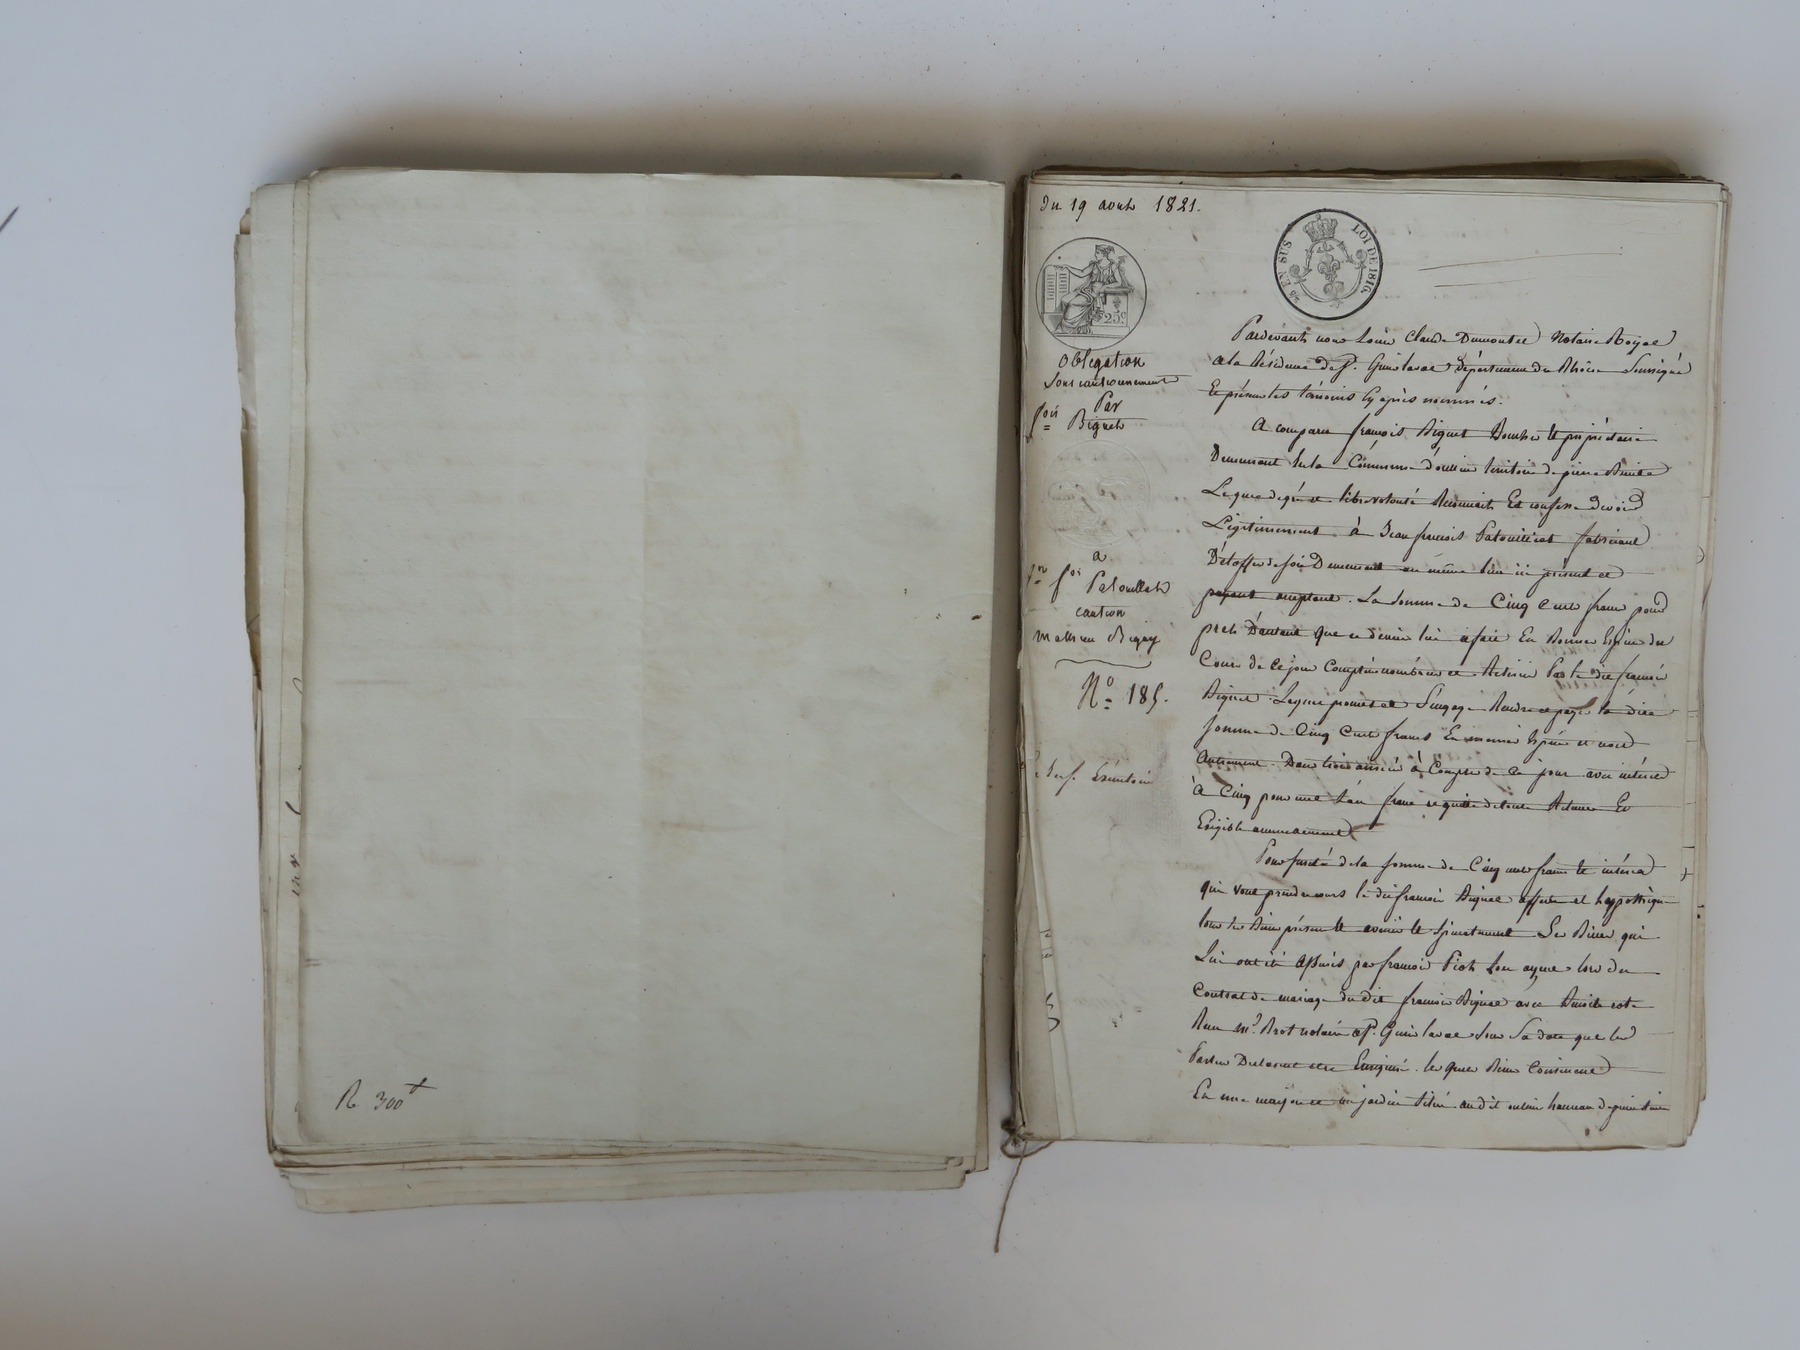 R 300
Du 19 aout 1821.
25 EN SUS
LOI DE 1816.
25c
obligation
sous cautionnement
Par
fois Biguet
a
fois Patouillat
caution
mathieu
No 185.
Pardevant nous Louis Claude Dumortier Notaire Royal
a la Résidence de St. Genis laval département du Rhône Soussigné
Et présents les témoins cy après nommés.
A comparu françois Biguet propriétaire
Demeurant sur la Commune d'oullins territoire de pierre Bénite
Lequel de gré et libre volonté Reconnait Et confesse devoir
Légitimement à Jean françois Patouillat fabricant
D'étoffes de soie Demeurant au même lieu ici présent et
acceptant. La somme de Cinq Cent francs pour
prêt D'autant que ce dernier lui a fait En Bonnes Espèces du
Cours de ce jour Comptées nombrées et Retirées Par le dit françois
Biguet Lequel promet et S'engage Rendre et payer la dite
somme de Cinq Cent francs En mêmes Espèces et non
Autrement. Dans trois années à Compter de ce jour avec intérêt
à Cinq pour cent l'an franc et quitte de toute Retenue Et
Exigible annuellement
Pour sureté de la somme de Cinq cent francs et intérêts
qui vont prendre cours le dit françois Biguet affecte et hyppothèque
tous ses Biens présents et avenir et Spécialement Les Biens qui
Lui ont été par françois Piot son lors du
Contrat de mariage du dit françois Biguet avec Benoite
Reçu me. Brot notaire a St. Genis laval Sous Sa date que les
Parties Déclarent être Enregistré. lesquels Biens Consistent
En une maison et un jardin situé au dit oullins hameau de pierre Bénite